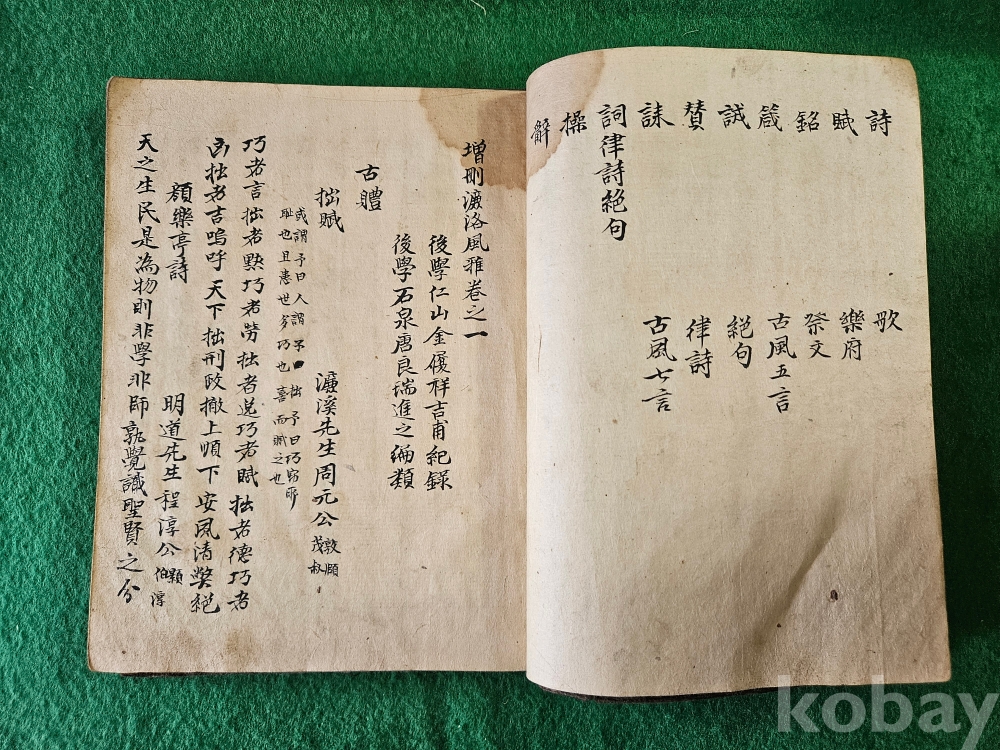 詩
賦
銘
箴
誡
賛
誄
詞律詩絕句
操
辭
歌
樂府
祭文
古風五言
絕句
律詩
古風七言
增刪濂洛風雅卷之一
後學仁山金履祥吉甫紀錄
後學石泉唐良瑞進之編類
古體
拙賦
濂溪先生周元公敦頤茂叔
或謂予曰人謂子拙予曰巧竊所
恥也且患世多巧也喜而賦之也
巧者言拙者默巧者勞拙者逸巧者賊拙者德巧者
凶拙者吉嗚呼天下拙刑政撤上順下安風清獘絕
顔樂亭詩
明道先生程淳公顥伯淳
天之生民是為物則非學非師孰覺識聖賢之分
kobay